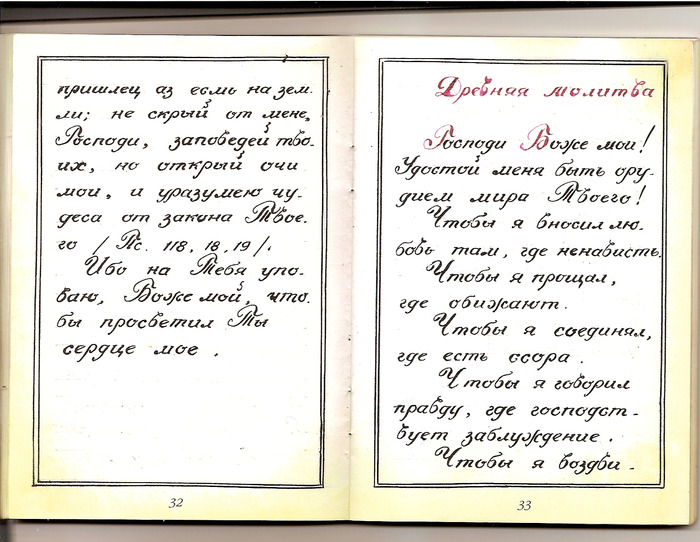 пришлец аз есмь на зем-
ли; не скрый от мене,
Господи, заповедей тво-
их, но открый очи
мои, и уразумею чу-
деса от закона Твое-
го /Пс. 118, 18, 19/.
Ибо на Тебя упо-
ваю, Боже мой, что-
бы просветил Ты
сердце мое.
32
Древняя молитва
Господи Боже мои!
Удостой меня быть ору-
дием мира Твоего!
Чтобы я вносил лю-
бовь там, где ненависть.
Чтобы я прощал,
где обижают.
Чтобы я соединял,
где есть ссора.
Чтобы я говорил
правду, где господст-
вует заблуждение.
Чтобы я воздви-
33